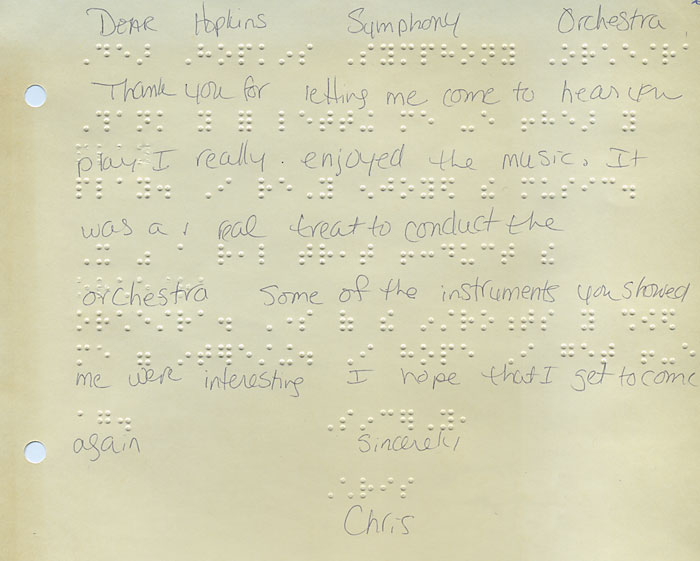 Dear Hopkins Symphony Orchestra,
Thank you for letting me come to hear you
play I really. enjoyed the music. It
was a real treat to conduct the
orchestra Some of the instruments you showed
me were interesting I hope that I get to come
again sincerely
Chris